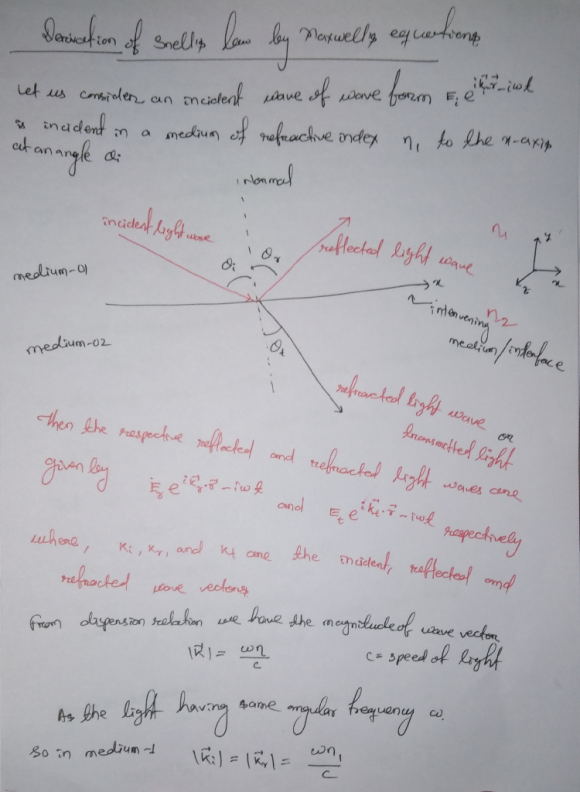 Derivation of Snell's law by Maxwell's equations
Let us consider an incident wave of wave form E_i e^{i\vec{k}_i.\vec{r} - iωt}
is incident in a medium of refractive index n_1 to the x-axis
at an angle θ_i
Normal
incident light wave
reflected light wave
n_1
y
x
z
θ_i
θ_r
medium-01
x
n_2
intervening
medium/interface
medium-02
θ_t
refracted light wave
or
transmitted light
Then the respective reflected and refracted light waves are
given by E_r e^{i\vec{k}_r.\vec{r} - iωt} and E_t e^{i\vec{k}_t.\vec{r} - iωt} respectively
where, k_i, k_r, and k_t are the incident, reflected and
refracted wave vectors
From dispersion relation we have the magnitude of wave vector
|\vec{k}| = ωn/c c = speed of light
As the light having same angular frequency ω.
So in medium-1 |\vec{k}_i| = |\vec{k}_r| = ωn_1/c